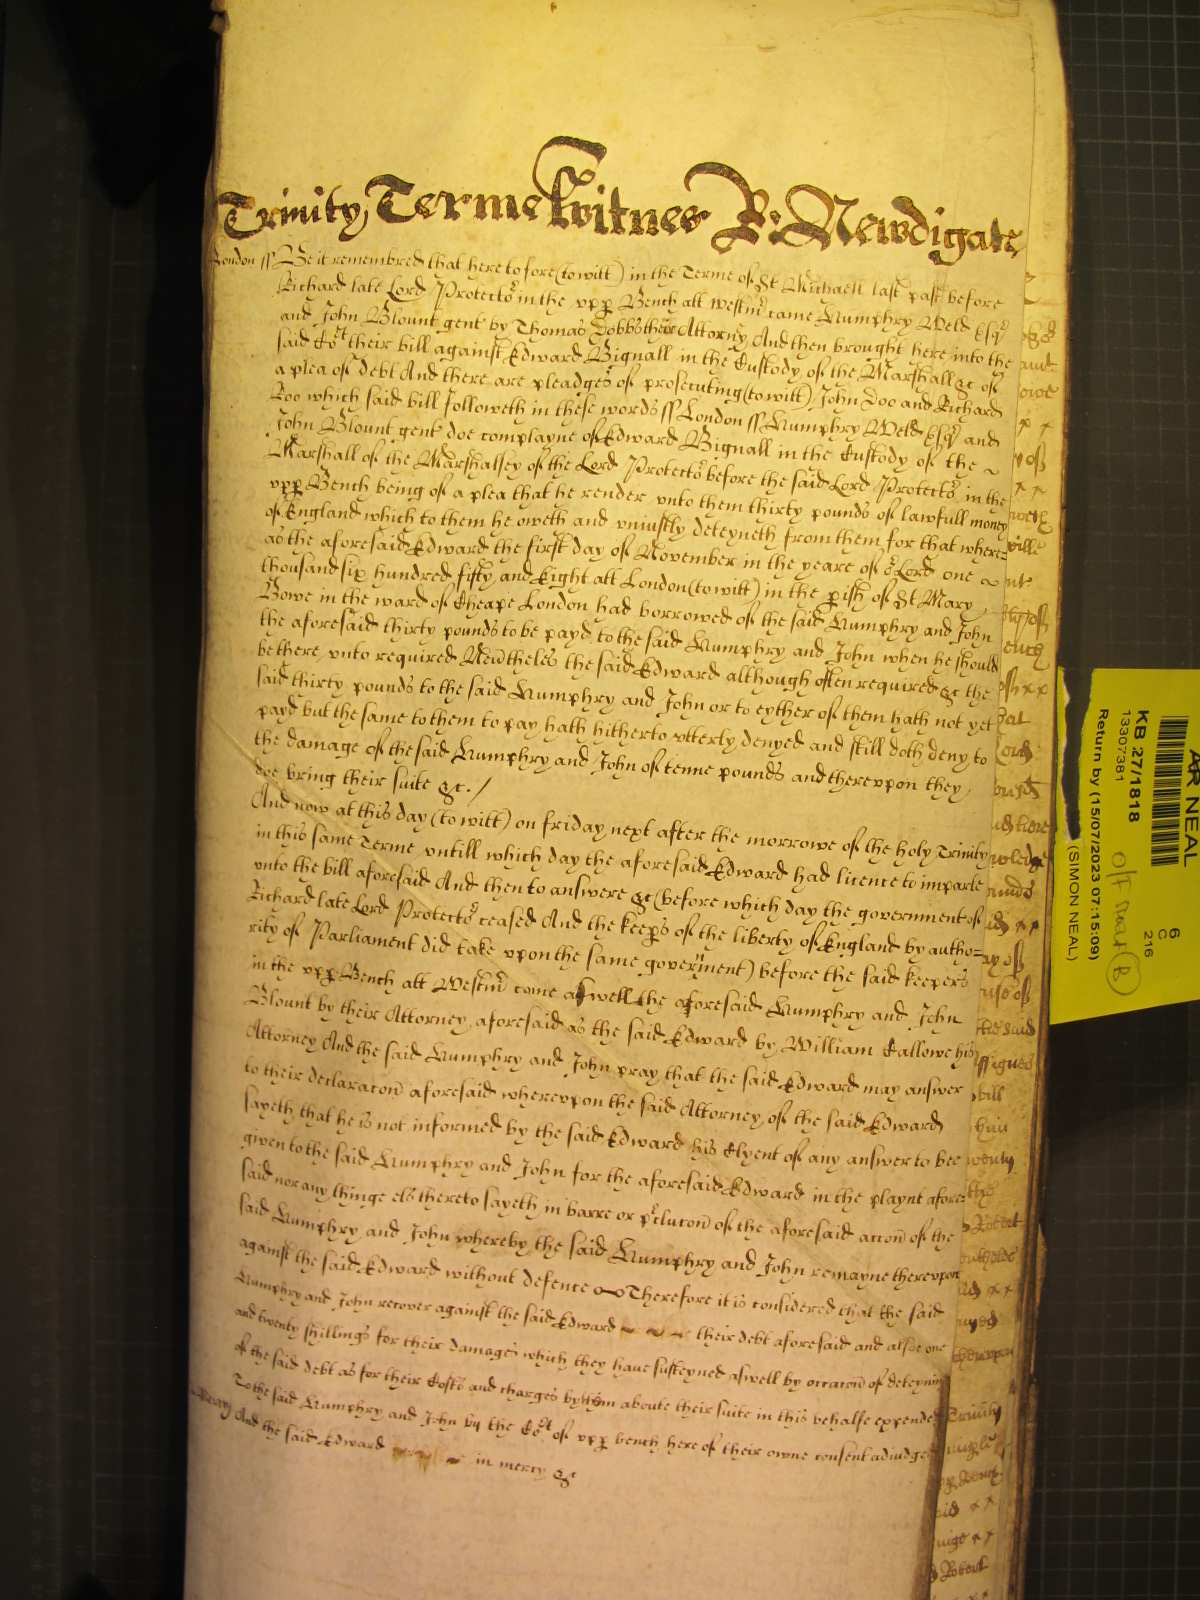 Trinity Terme Witnes R: Newdigate
London ss Be it remembred that heretofore (to witt) in the Terme of St Michaell last past before
Richard late Lord Protector in the upp Bench att Westmr came Humphry Weld Esqr
and John Blount gent by Thomas Dobbs their Attorny And then brought here into the
said Cort their bill against Edward Bignall in the Custody of the Marshall &c of
a plea of debt And there are pleadges of prosecuting (to witt) John Doo and Richard
Roo which said bill followeth in these words ss London ss Humphry Weld Esqr and
John Blount gent doe complayne of Edward Bignall in the Custody of the ~
Marshall of the Marshalsey of the Lord Protector before the said Lord Protector in the
upp Bench being of a plea that he render unto them thirty pounds of lawfull money
of England which to them he oweth and uniustly deteyneth from them for that where=
as the aforesaid Edward the first day of November in the yeare of or Lord one ~
thousand six hundred fifty and Eight att London (to witt) in the pish of St Mary
Bowe in the ward of Cheape London had borrowed of the said Humphry and John
the aforesaid thirty pounds to be payd to the said Humphry and John when he should
be there unto required Nevtheles the said Edward although often required &c the
said thirty pounds to the said Humphry and John or to eyther of them hath not yet
payd but the same to them to pay hath hitherto utterly denyed and still doth deny to
the damage of the said Humphry and John of tenne pounds and thereupon they
doe bring their suite &c. /
And now at this day (to witt) on Friday next after the morrowe of the holy Trinity
in this same Terme untill which day the aforesaid Edward had licence to imparle
unto the bill aforesaid And then to answere &c (before which day the government of
Richard late Lord Protector ceased And the keeps of the liberty of England by autho=
rity of Parliament did take upon the same goverment) before the said keepers
in the upp Bench att Westmr come aswell the aforesaid Humphry and John
Blount by their Attorney aforesaid as the said Edward by William Callowe his
Attorney And the said Humphry and John pray that the said Edward may answer
to their declaracon aforesaid whereupon the said Attorney of the said Edward
sayeth that he is not informed by the said Edward his Clyent of any answer to bee
given to the said Humphry and John for the aforesaid Edward in the playnt afore=
said nor any thinge els thereto sayeth in barre or preclucon of the aforesaid accon of the
said Humphry and John whereby the said Humphry and John remayne thereupon
against the said Edward without defence Therefore it is considered that the said
Humphry and John recover against the said Edward ~ ~ ~ their debt aforesaid and alsoe one
and twenty shillings for their damages which they have susteyned aswell by occacon of deteyning
of the said debt as for their Costs and charges by them aboute their suite in this behalfe expended
To the said Humphry and John by the Cort of upp bench here of their owne consent adiudged
And the said Edward in mercy &c
AR NEAL
6
C
216
KB 27/1818
13307381
Return by (15/07/2023 07:15:09)
(SIMON NEAL)